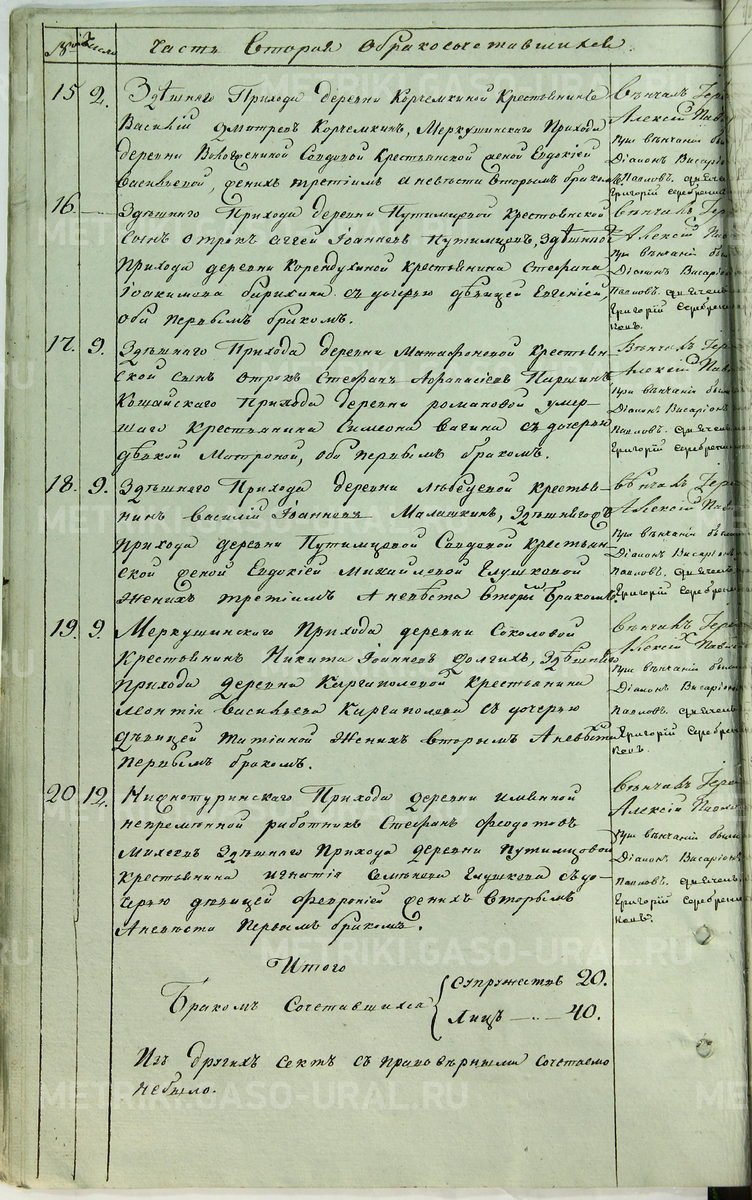 № Число Часть Вторая Обракосочетавшихся.
15 2. Здѣшняго Прихода деревни Корчемкиной Крестьянинъ
Василій Дмитреевъ Корчемкинъ, Меркушинскаго Прихода
деревни Вдовой Крестьянской женой Евдокіей
Васильевой, женихъ третіимъ а невѣста вторымъ бракомъ.
Вѣнчалъ
Алексій
при вѣнчаніи
Діаконъ
Павловъ.
Григорій
16. — Здѣшняго Прихода деревни Путимцовой Крестьянской
сынъ отрокъ Аггей Іоанневъ Путимцовъ, Здѣшняго
Прихода деревни Корендухиной Крестьянина Стефана
Іоакимова съ дочерью дѣвицей Евгеніей,
Оба первымъ бракомъ.
Вѣнчалъ
Алексій
при вѣнчаніи
Діаконъ
Павловъ.
Григорій
17. 9. Здѣшняго Прихода деревни Матафоновой Крестьян-
ской сынъ отрокъ Стефанъ Афанасіевъ Паршинъ
Кошайскаго Прихода деревни Романовой умер-
шаго Крестьянина Симеона Вагина съ дочерью
дѣвкой Матроной, оба первымъ бракомъ.
Вѣнчалъ
Алексій
при вѣнчаніи
Діаконъ
Павловъ.
Григорій
18. 9. Здѣшняго Прихода деревни Лебедевой Крестья-
нинъ Василій Іоанневъ Малашкинъ, Здѣшнягожъ
Прихода деревни Путимцовой Вдовой Крестьян-
ской женой Евдокіей Михайлевой Глушковой
Женихъ третіимъ А невѣста вторымъ бракомъ.
Вѣнчалъ
Алексій
при вѣнчаніи
Діаконъ
Павловъ.
Григорій
19. 9. Меркушинскаго Прихода деревни Соколовой
Крестьянинъ Никита Іоанневъ Долгихъ, Здѣшняго
Прихода деревни Каргаполовой Крестьянина
Леонтія Васильева Каргаполова съ дочерью
Дѣвицей Татіаной Женихъ вторымъ А невѣста
первымъ бракомъ.
Вѣнчалъ
Алексій
при вѣнчаніи
Діаконъ
Павловъ.
Григорій
20 12. Нижнотуринскаго Прихода деревни Именной
непременной работникъ Стефанъ Феодотовъ
Здѣшняго Прихода деревни Путимцовой
Крестьянина Игнатія Семенова Глушкова съ до-
черью дѣвицей Февроніей женихъ вторымъ
А невѣста первымъ бракомъ.
Вѣнчалъ
Алексій
при вѣнчаніи
Діаконъ
Павловъ.
Григорій
Итого
Бракомъ Сочетавшихся
Супружествъ 20.
Лицъ — 40.
Изъ другихъ сектъ съ правовѣрными сочетаемо
небыло.
METRIKI.GASO-URAL.RU